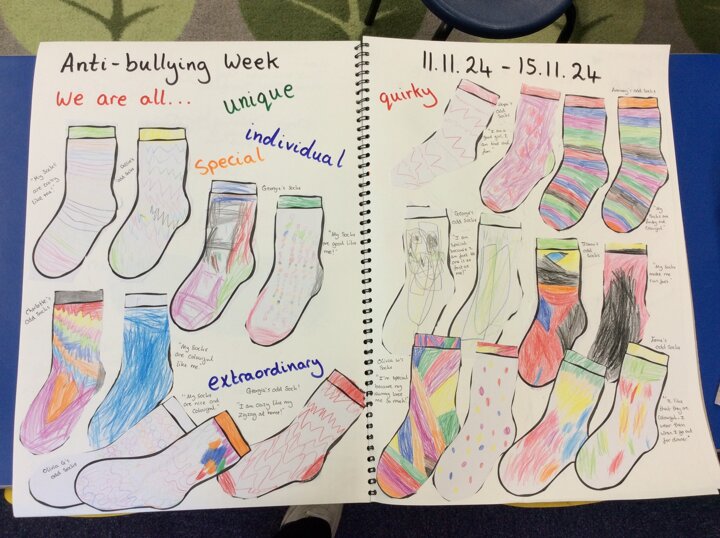 Anti-bullying Week
We are all...
unique
individual
special
"My Socks
are crazy
like me"
odd Socks
Georgia's Socks
"My Socks
are good like
me!"
Charlotte's
odd Socks
"My Socks
are colourful
like me
extraordinary
"My Socks
are nice and
Colourful"
Georgia's odd Sock!
"I am crazy like my
zigzag at home!"
Olivia G's
odd Socks
11.11.24 - 15.11.24
quirky
odd
Socks
"I am a
good girl, I
am kind and
fun.
odd Socks
"My
Socks are
and
Colourful"
George's
odd Socks
"I am
special
because I
am fast
one is as
fast as
me!"
odd Socks
"My
Socks
make me
run fast
Olivia W's
Socks
"I'm special
because my
mummy loves me
so much!"
odd Socks
"I like
that they are
Colourful. I
wear them
when I go out
for dinner."